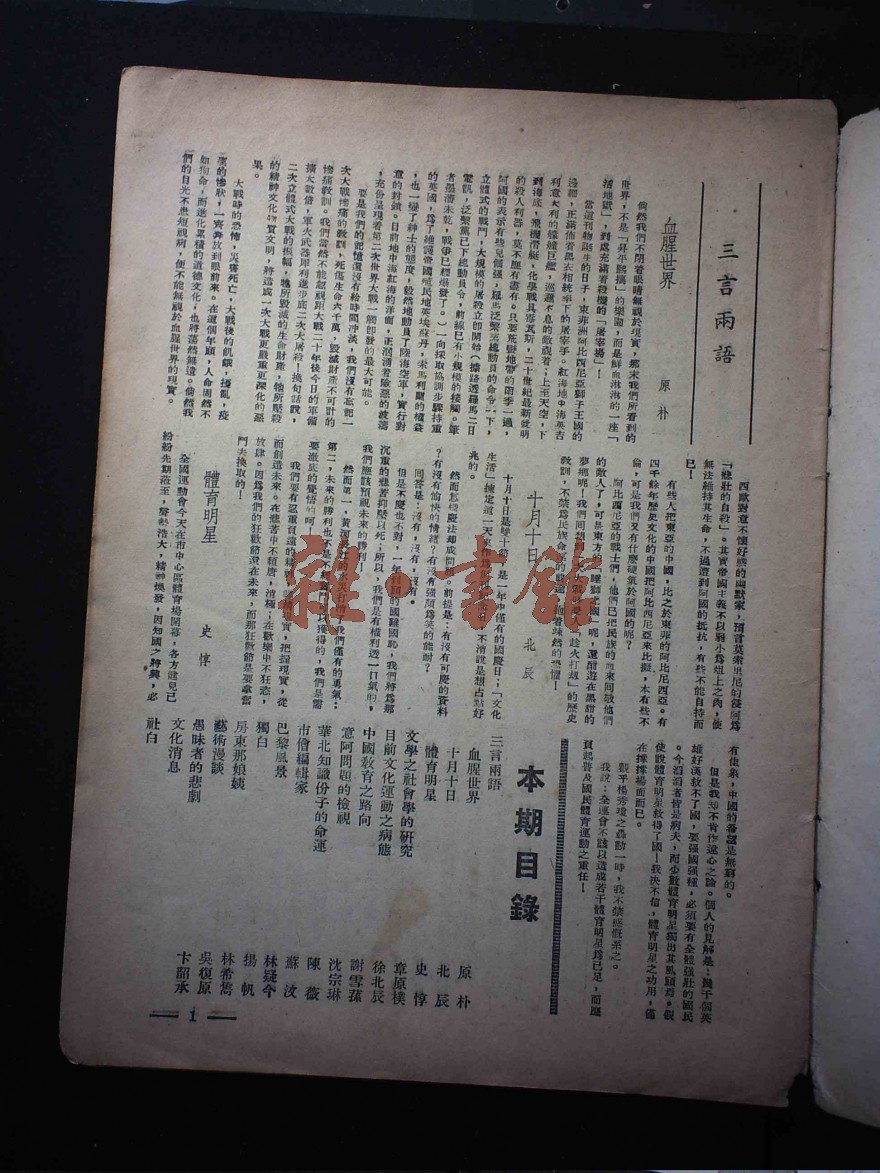 三言兩語
血腥世界
原朴
倘然我們不閉着眼睛無視於現實,那末我們所看到的
世界,不是「昇平熙攘」的樂園,而是鮮血淋淋的一座「
活地獄」,到處充滿着殺機的「屠宰場」!
當這刊物誕生的日子,東非洲阿比西尼亞獅子王國的
邊疆,正滿佈着黑衣相統率下的屠宰手。紅海地中海英吉
利意大利的艨艟巨艦,巡邏不息的敵視着;上至天空,下
到海底,飛機潛艇,化學戰具毒瓦斯,二十世紀最新發明
的殺人利器,莫不應有盡有。只要荒礬地帶的雨季一過,
阿國的表示有些兒倔强,羅馬泛繫至總動員的命令一下,
立體式的戰鬥,大規模的屠殺立即開始(據路透羅馬二日
電訊,泛繫黨已下總動員令,前線已有小規模的接觸。筆
者墨瀋未乾,戰爭已經爆發了。)一向採取協調步驟持重
的英國,爲了維護帝國殖民地英埃蘇丹,索馬利蘭的權益
,也一變了紳士的態度,毅然地動員了陸海空軍,實行對
意的封鎖。目前地中海紅海的洋面,正洶湧着險惡的波濤
,充份呈現着第二次世界大戰一觸即發的最大可能。
要是我們的記憶還沒有給時間冲淡,我們沒有忘記一
次大戰慘痛的教訓,死傷生命六千萬,毀滅財產不可計的
慘痛教訓。我們當然不能忽視距大戰二十年後今日的軍備
擴大數倍,軍火武器犀利進步底二次大屠殺!換句話說,
二次立體式大戰的摧幅,牠所毀滅的生命財產,牠所壓殺
的精神文化物質文明,將造成一次大戰更嚴重更深化的惡
果。
大戰時的恐怖,災害死亡,大戰後的飢餓,擾亂,疫
癘的慘狀,一齊奔放到眼前來。在這個年頭,人命固然不
如狗命,而進化累積的道德文化,也將蕩然無遺。倘然我
們的目光不患短視病,便不能無視於血腥世界的現實。
西歐對意不懷好感的幽默家,預言莫索里尼的侵阿爲
「悲壯的自殺」。其實帝國主義不以弱小爲俎上之肉,便
無法維持其生命,不過遭到阿國的抵抗,有些不能自持而
已!
有些人把東亞的中國,比之於東菲的阿比西尼亞。有
四千餘年歷史文化的中國把阿比西尼亞來比擬,本有些不
倫,可是我們又有什麽硬氣於阿國的呢?
阿比西尼亞的戰士們,他們已把民族的血來回敬他們
的敵人了,可是東方的睡獅王國呢,還酣遊在黑甜的
夢鄉呢!我們回想到一次大戰時受人「趁火打刼」的歷史
敎訓,不禁爲民族命運的前途,抱着悚然的恐懼!
十月十日
北辰
十月十日是雙十節,是一年中僅有的國慶日;「文化
生活」揀定這一天來作爲創刊的日子,不消說是想占點好
兆的。
然而怎樣慶法却成問題。前提是:有沒有可慶的資料
?有沒有愉快的情緒?有沒有强顏爲笑的能耐?
同答是:沒有,沒有,沒有。
但是不慶也不對,一年到頭的國難國恥,我們將爲那
沉重的悲苦抑壓以死;所以,我們是有權利透一口氣的,
我們應該預祝未來的勝利!
然而第一,黃河長江的水災打擊了我們僅有的勇氣;
第二,未來的勝利也不是不經奮鬥可以獲得的,我們是需
要澈底的覺悟的呵!
我們要有忍重負遠的精神,認識現實,把握現實,從
而創造未來。在悲苦中不頹唐,消極;在歡樂中不狂恣,
放肆。因爲我們的狂歡節還在未來,而那狂歡節是要拿奮
鬥去換取的!
體育明星
史惇
全國運動會今天在市中心區體育場開幕,各方健兒已
紛紛先期蒞至,聲勢浩大,精神煥發,因知國之將興,必
有佳象,中國的希望是無窮的。
但是我却不肯作違心之論。個人的見解是:幾千個英
雄好漢救不了國,要强國强種,必須要有全體强壯的國民
。今滔滔者皆是病夫,而少數體育明星獨出其風頭焉。假
使說體育明星救得了國!我決不信,體育明星之功用,僅
在撑撑塲面而已。
觀乎楊秀瓊之轟動一時,我不禁感慨系之。
我說:全運會不該以造成若干體育明星爲已足,而應
負起普及國民體育運動之重任!
本期目錄
三言兩語
血腥世界 原朴
十月十日 北辰
體育明星 史惇
文學之社會學的研究 章原樸
目前文化運動之病態 徐北辰
中國敎育之路向 謝雪蓀
意阿問題的檢視 沈宗琳
華北知識份子的命運 陳薇
市儈編輯家 蘇汶
巴黎風景 林疑今
獨白 揚帆
房東那娘姨 林希雋
藝術漫談 吳復原
愚昧者的悲劇 卞韶承
文化消息
社白
1
雜·書館